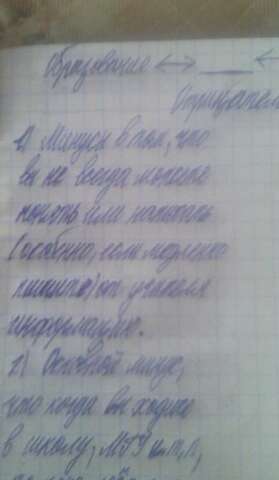 Образование <-> ___ <-
Отрицател
1) Минусы в том, что
вы не всегда можете
понять или написать
(особенно, если медленно
пишите) от учителя
информацию.
2) Основной минус,
что когда вы ходите
в школу, МГУ и т.п,